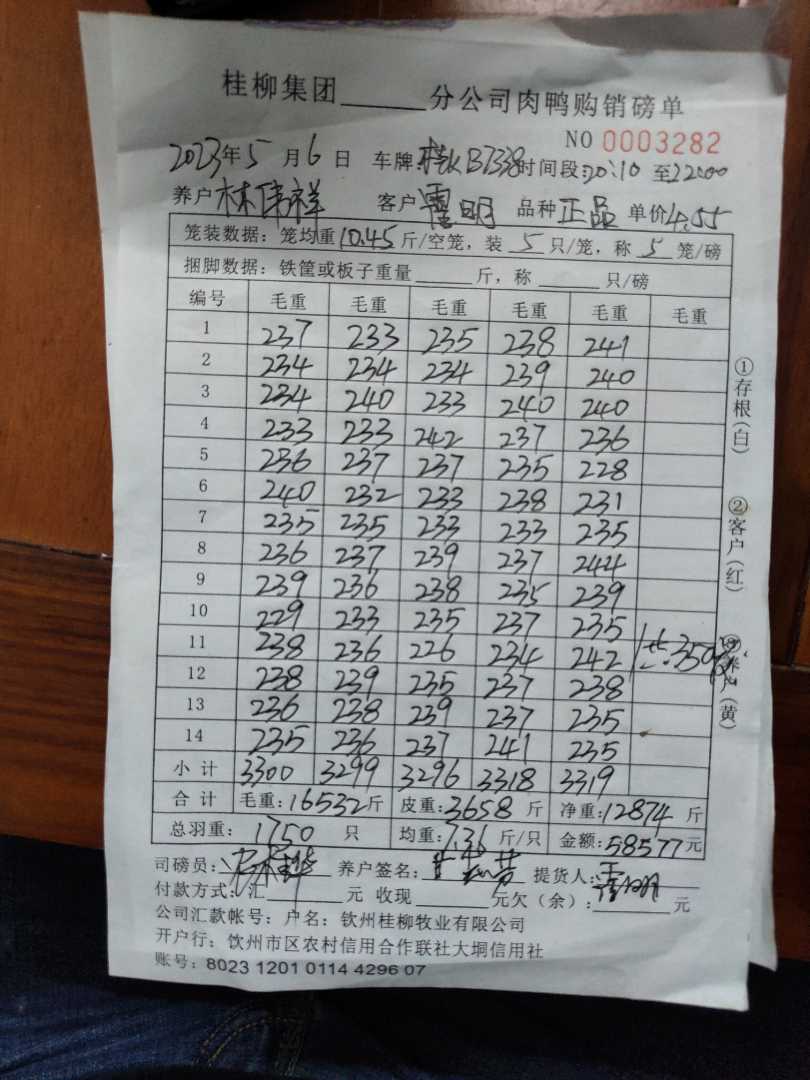 桂柳集团______分公司肉鸭购销磅单
NO 0003282
2023年5月6日 车牌: B7338 时间段:20:10 至22:00
养户 林伟祥 客户 明 品种 正品 单价4.55
笼装数据：笼均重10.45斤/空笼，装5只/笼，称5笼/磅
捆脚数据：铁筐或板子重量______斤，称______只/磅
编号 毛重 毛重 毛重 毛重 毛重 毛重
1 237 233 235 238 241
2 234 234 234 239 240
3 234 240 233 240 240
4 233 233 242 237 236
5 236 237 237 235 228
6 240 232 233 238 231
7 235 235 233 233 235
8 236 237 239 237 244
9 239 236 238 235 239
10 229 233 235 237 235
11 238 236 226 234 242 共:350
12 238 239 235 237 238
13 236 238 239 237 235
14 235 236 237 241 235
小计 3300 3299 3296 3318 3319
合计 毛重:16532斤 皮重:3658斤 净重:12874斤
总羽重:1750只 均重:7.36斤/只 金额:58577元
司磅员: 养户签名: 提货人:
付款方式:汇______元 收现______元欠（余）:______元
公司汇款帐号：户名：钦州桂柳牧业有限公司
开户行：钦州市区农村信用合作联社大垌信用社
账号：8023 1201 0114 4296 07
①存根(白)
②客户(红)
③养户(黄)